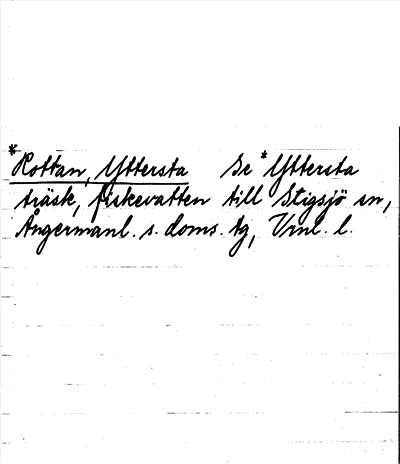 *Kottan, Yttersta Se *Yttersta
träsk, fiskevatten till Stigsjö sn,
Ångermanl. s. doms. tg, Vrnl. l.